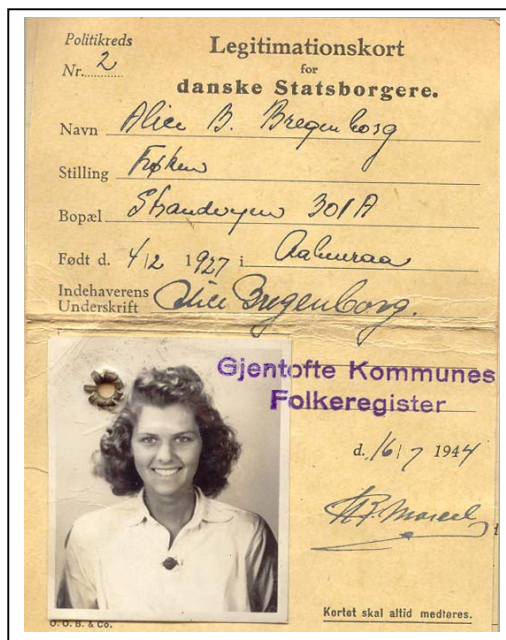 Politikreds
Nr. 2
Legitimationskort
for
danske Statsborgere.
Navn Alice B. Bregenborg
Stilling Frøken
Bopæl Strandvejen 301A
Født d. 4/2 1927 i Aabenraa
Indehaverens
Underskrift Alice Bregenborg.
Gjentofte Kommunes
Folkeregister
d. 16/7 1944
Kortet skal altid medføres.
O. O. B. & Co.